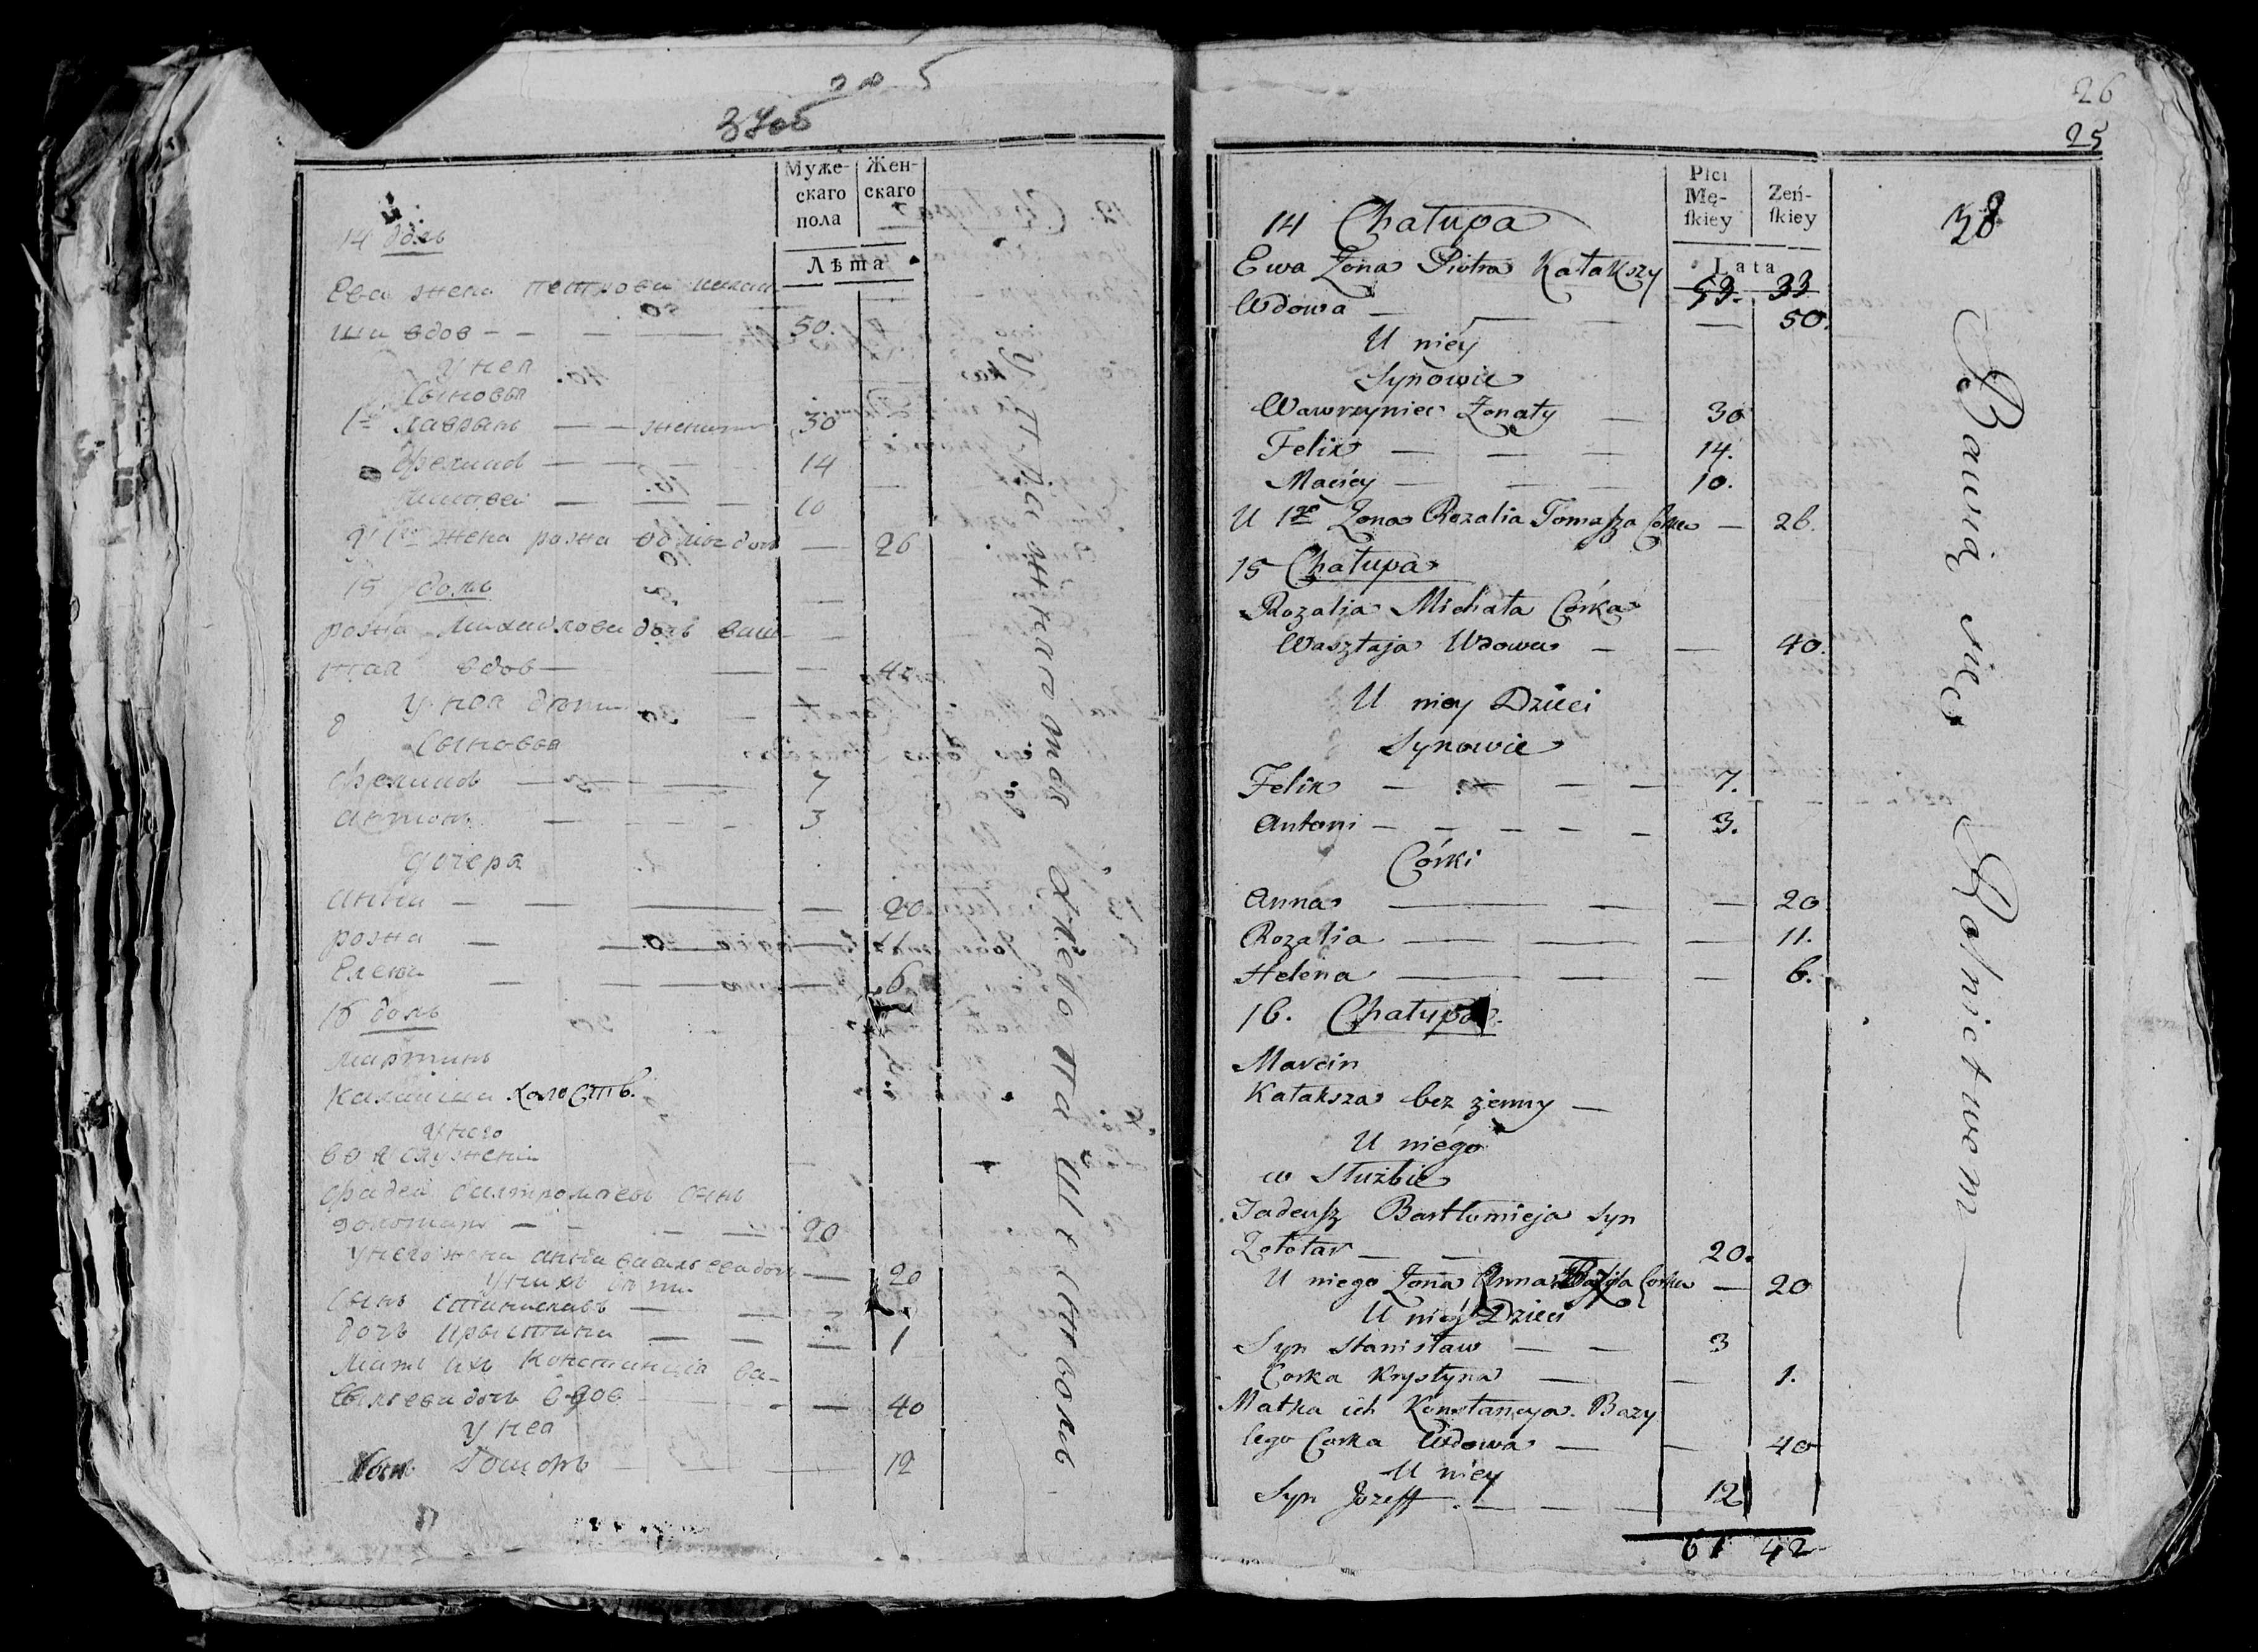 5
37об
Муже-
скаго
пола
Жен-
скаго
Лѣта
14 домъ
Ева жена петрова
вдов — 50.
У нея
Сыновья
1й Лаврынъ — — женатъ 30
Феликсъ — — 14
Матвей — — 10
У 1го жена розка дочь — 26
15 домъ
розка Михайлова дочь ваш-
тая вдов — — 40
У нея дети
Сыновья
Феликсъ — — 7
антонъ — — 3
дочера
анна — — 20
розка — — 11
Елена — — 6
16 домъ
мартинъ
калакша холостъ.
У него
в услужении
фадей балтромеевъ сынъ
золотаръ — — 20
У него жена анна васильева дочь — 20
У нихъ дети
сынъ станиславъ — — 3
дочь крыстина — — 1
Мать ихъ Констанція ва-
сильева дочь вдов — — 40
У нея
Сынъ — — 12
Упражняются хлебопашествомъ
26
25
38
Płci
Mę-
skiey
Zeń-
skiey
Lata
53. 33
14 Chałupa
Ewa Żona Piotra Kałakszy
Wdowa — — 50.
U niéy
Synowie
Wawrzyniec Żonaty — 30
Felix — — — 14.
Maciéy — — 10.
U 1go Żona Rozalia Tomasza Corka — 26.
15 Chałupa
Rozalia Michała Córka
Wasztaja Wdowa — — 40.
U niey Dzieci
Synowie
Felix — — — — 7.
Antoni — — — — — 3.
Córki
Anna — — — 20
Rozalia — — — 11.
Helena — — — 6.
16. Chałupa.
Marcin
Kałaksza bez żenny —
U niégo
w Służbie
Tadeusz Bartłumieja Syn
Zołotar — — — 20.
U niego Żona Anna Bazyla Corka — 20
U niéy Dzieci
Syn Stanisław — — 3
Corka Krystyna — — 1.
Matka ich Konstancya Bazy
lego Corka Wdowa — — 40
U niey
Syn Jozeff. — — — 12
61 42
Bawią się Rolnictwem —